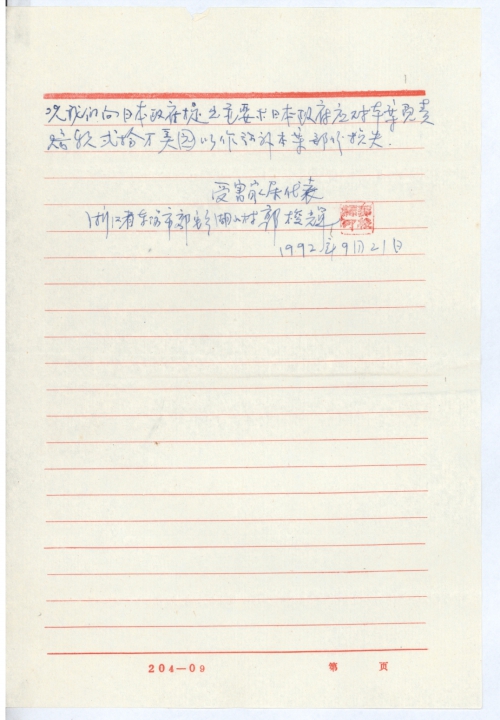 次我们向日本政府提出要求日本政府应对本案负责
赔款贰拾万美圆以作弥补本案部份损失.
受害家属代表
浙江省东阳市郭 湖 村郭 
1992年9月21日
204—09 第 页